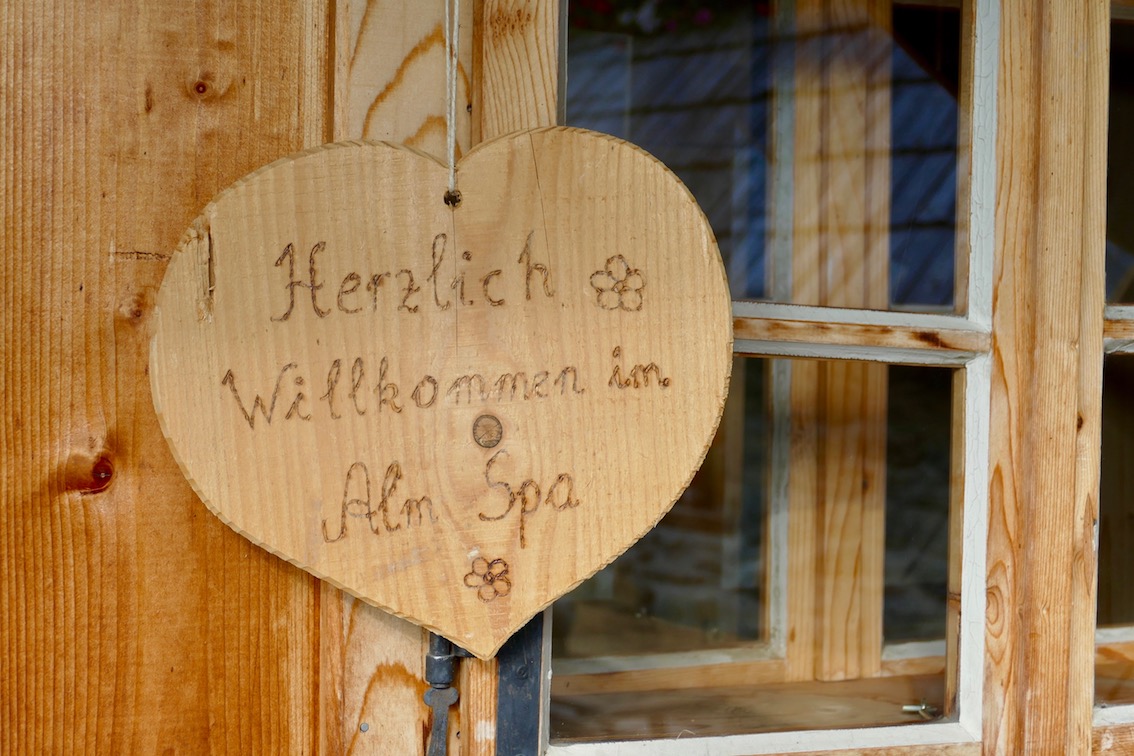 Herzlich
Willkommen i.m.
Alm Spa